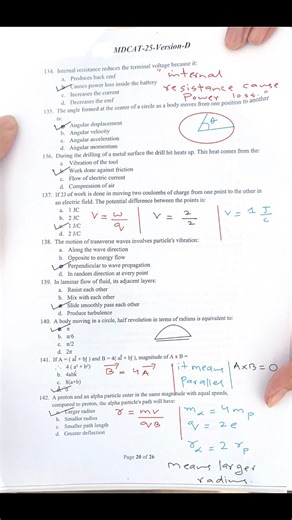 MDCAT-25-Version-D
134. Internal resistance reduces the terminal voltage because it:
a. Produces back emf
b. Causes power loss inside the battery
c. Increases the current
d. Decreases the emf
"internal
resistance cause
Power loss."
135. The angle formed at the center of a circle as a body moves from one position to another
is:
a. Angular displacement
b. Angular velocity
c. Angular acceleration
d. Angular momentum
θ
136. During the drilling of a metal surface the drill bit heats up. This heat comes from the:
a. Vibration of the tool
b. Work done against friction
c. Flow of electric current
d. Compression of air
137. If 2J of work is done in moving two coulombs of charge from one point to the other in
an electric field. The potential difference between the points is:
a. 1 JC
b. 2 JC
c. 1 J/C
d. 2 J/C
V = W/q | V = 2/2 | V = 1 J/C
138. The motion of transverse waves involves particle's vibration:
a. Along the wave direction
b. Opposite to energy flow
c. Perpendicular to wave propagation
d. In random direction at every point
139. In laminar flow of fluid, its adjacent layers:
a. Resist each other
b. Mix with each other
c. Slide smoothly past each other
d. Produce turbulence
140. A body moving in a circle, half revolution in terms of radians is equivalent to:
a. π
b. π/6
c. π/2
d. 2π
141. If A = ( aî + bĵ ) and B = 4( aî + bĵ ), magnitude of A x B =
4 ( a² + b²)
b. 4abk
c. 8(a+b)
B = 4A
it means
Parallel
A×B = 0
142. A proton and an alpha particle enter in the same magnitude with equal speeds,
compared to proton, the alpha particle's path will have:
a. Larger radius
b. Smaller radius
c. Smaller path length
d. Greater deflection
r = mv/qB
mα = 4mp
q = 2e
rα = 2 rp
means larger
radius.
Page 20 of 26